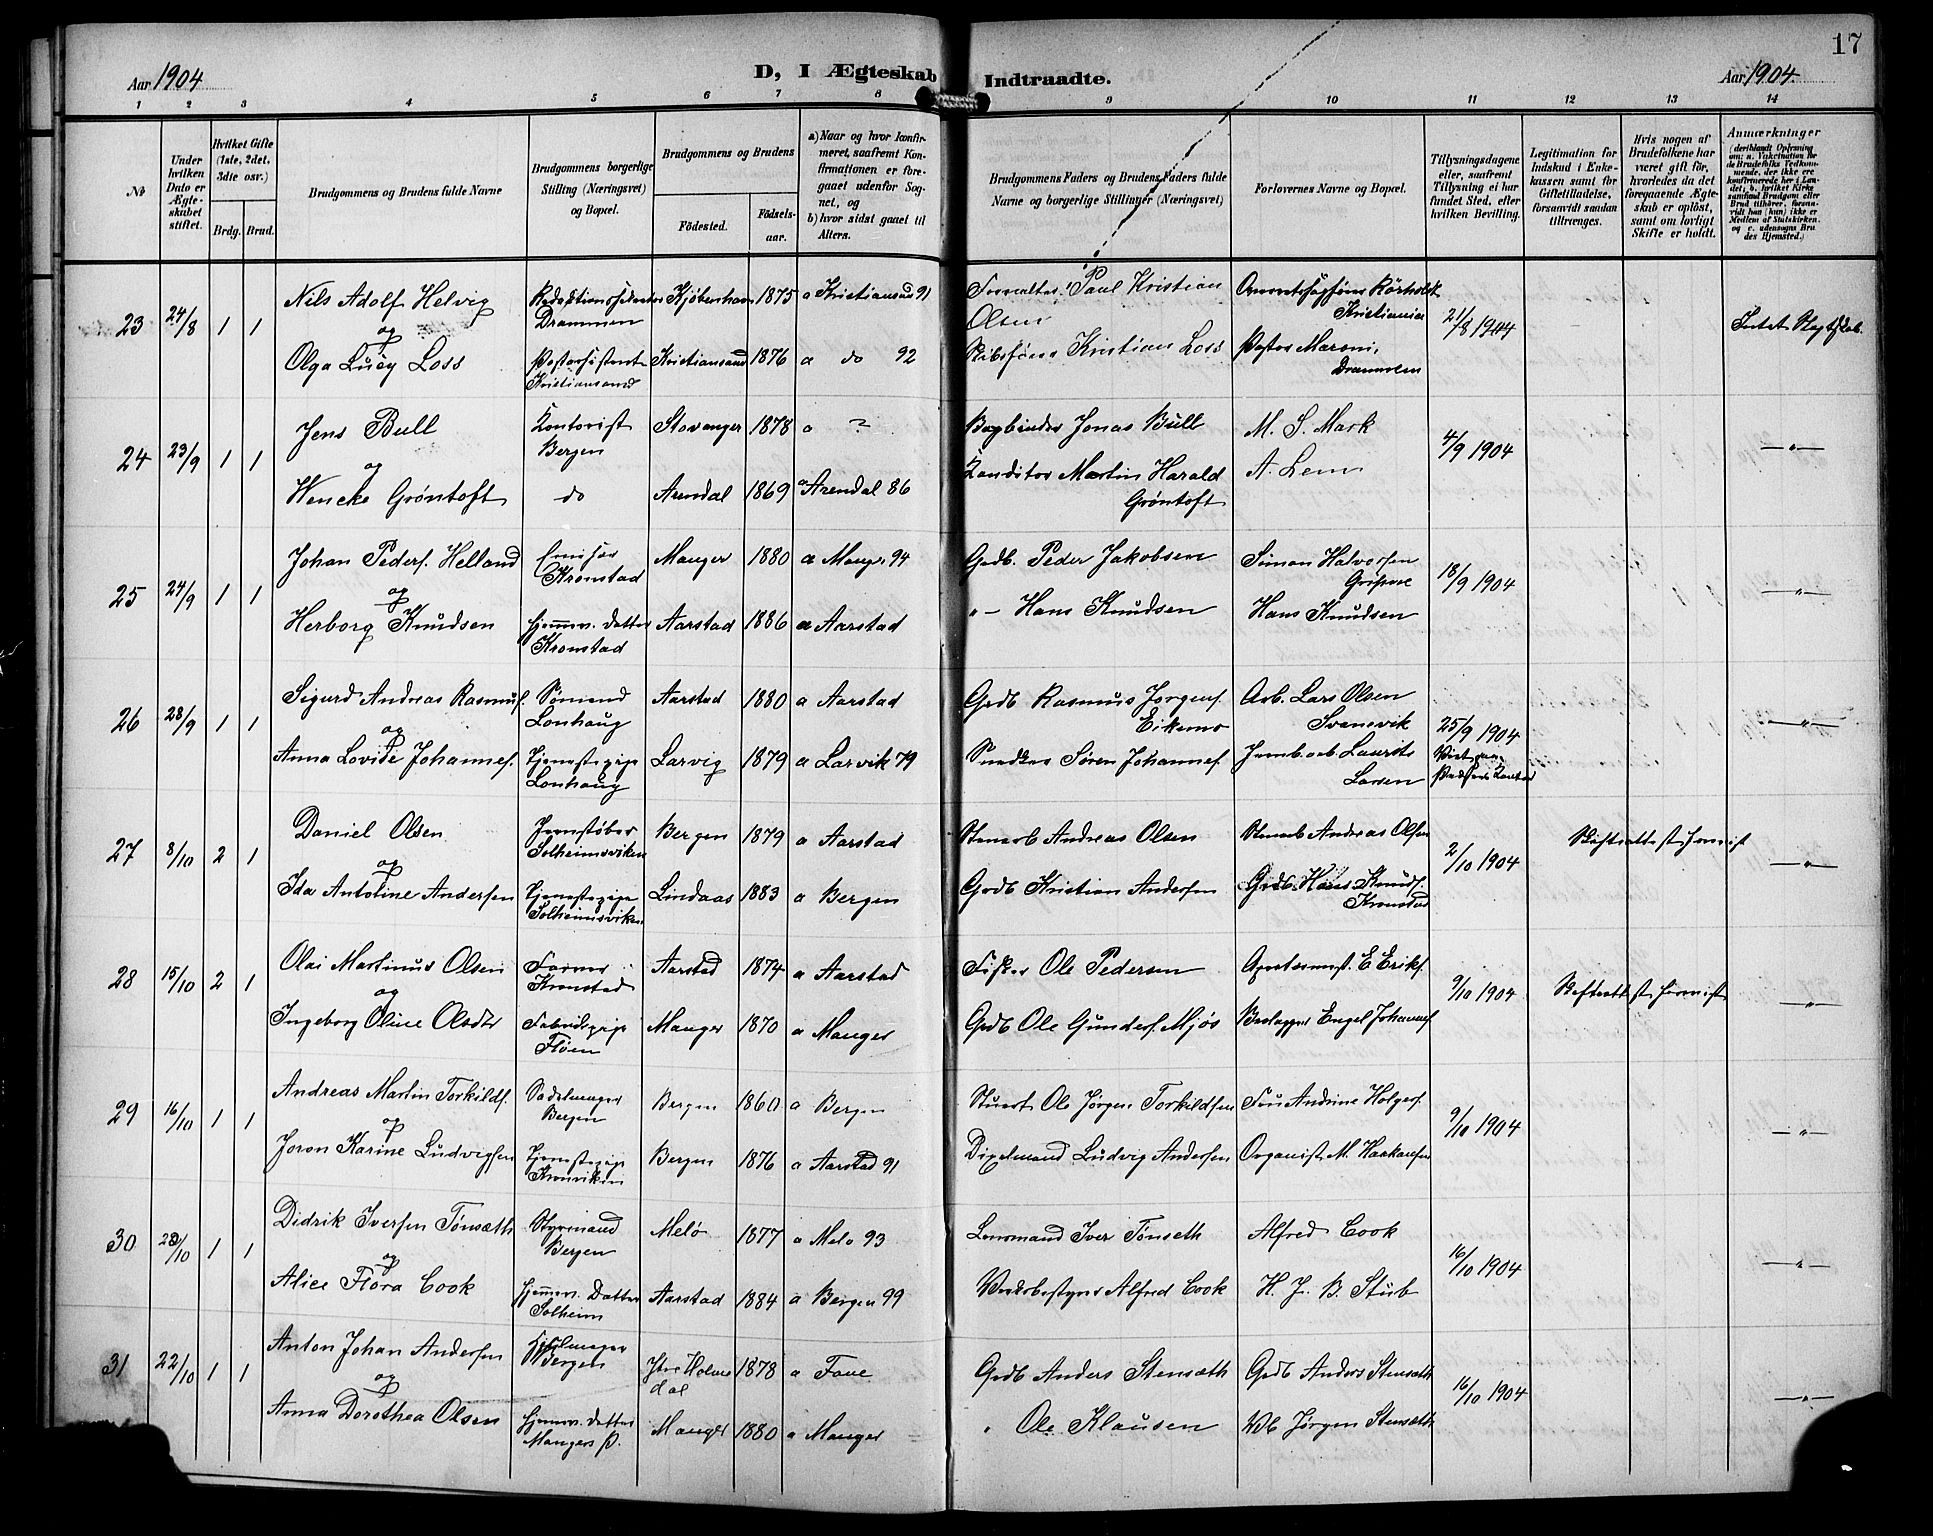 17
Aar 1904
D, I Ægteskab
Indtraadte.
Aar 1904.
1 2 3 4 5 6 7 8 9 10 11 12 13 14
No
Under hvilken Dato er Ægteskabet stiftet.
Hvilket Gifte (1ste, 2det, 3die osv.)
Brdg. Brud.
Brudgommens og Brudens fulde Navne
Brudgommens borgerlige Stilling (Næringsvei) og Bopæl.
Brudgommens og Brudens
Fødested.
Fødselsaar.
a) Naar og hvor konfirmeret, saafremt Konfirmationen er foregaaet udenfor Sognet, og
b) hvor sidst gaaet til Alters.
Brudgommens Faders og Brudens Faders fulde Navne og borgerlige Stillinger (Næringsvei)
Forlovernes Navne og Bopæl.
Tillysningsdagene eller, saafremt Tillysning ei har fundet Sted, efter hvilken Bevilling.
Legitimation for Indskud i Enkekassen samt for Giftetilladelse, forsaavidt saadan tiltrænges.
Hvis nogen af Brudefolkene har været gift før, hvorledes da det foregaaende Ægteskab er opløst, samt om lovligt Skifte er holdt.
Anmærkninger
23 24/8 1 1
Nils Adolf Helvig
Drammen
Kjøbenhavn 1875 a Kristiansand 91
Paul Kristian
Olsen
Kristiania
21/8 1904
og
Olga Lucy Loss
Kristiansand
Kristiansand 1876 a do 92
Skibsfører Kristian Loss
Pastor Maroni,
Drammen
24 23/9 1 1
Jens Bull
Kontorist
Bergen
Stavanger 1878 a
Bogbinder Jonas Bull
M. S. Mark
4/9 1904
—„—
og
Wencke Grøntoft
do
Arendal 1869 a Arendal 86
Konditor Martin Harald
Grøntoft
A. Lem
25 24/9 1 1
Johan Peders. Helland
Kronstad
Manger 1880 a Manger 94
Grdb. Peder Jakobsen
Simon Halvorsen
18/9 1904
—„—
og
Herborg Knudsen
Hjemmev. Datter
Kronstad
Aarstad 1886 a Aarstad
„— Hans Knudsen
Hans Knudsen
26 28/9 1 1
Sigurd Andreas Rasmus.
Sømand
Lonhaug
Aarstad 1880 a Aarstad
Grdb Rasmus Jørgens.
Eikemo
Arb. Lars Olsen
Svanevik
25/9 1904
—„—
og
Anna Lovise Johannes.
Tjenestepige
Lonhaug
Larvig 1879 a Larvik 79
Snedker Søren Johannes.
Jernb. arb. Laurits
Larsen
27 8/10 2 1
Daniel Olsen
Jernstøber
Solheimsviken
Bergen 1879 a Aarstad
Stenarb Andreas Olsen
Stenarb Andreas Olsen
2/10 1904
—„—
og
Ida Antotine Andersen
Tjenestepige
Solheimsviken
Lindaas 1883 a Bergen
Grdb Kristian Andersen
Grdb. Hans Knuds.
Kronstad
28 15/10 2 1
Olai Martinus Olsen
Kronstad
Aarstad 1874 a Aarstad
Fisker Ole Pedersen
E Eriks.
9/10 1904
—„—
og
Ingeborg Oline Olsdtr
Fabrikpige
Fløen
Manger 1870 a Manger
Grdb Ole Gunders. Mjøs
Engel Johannes.
29 16/10 1 1
Andreas Martin Torkilds.
Sadelmager
Bergen
Bergen 1860 a Bergen
Stuert Ole Jørgen Torkildsen
Fru Andrine Holgers.
9/10 1904
—„—
og
Joron Karine Ludvigsen
Tjenestepige
Kronviken
Bergen 1876 a Aarstad 91
Ludvig Andersen
Organist M. Haakonsen
30 1 1
Didrik Iversen Tønsæth
Styrmand
Bergen
Melø 1877 a Melø 93
Lensmand Iver Tønseth
Alfred Cook
16/10 1904
—„—
og
Alice Flora Cook
Hjemmev. Datter
Solheim
Aarstad 1884 a Bergen 99
Alfred Cook
H. J. B. Stub
31 22/10 1 1
Anton Johan Andersen
Bergen
Ytre Holmedal 1878 a Fane
Grdb Anders Stensæth
Grdb Anders Stensæth
16/10 1904
—„—
og
Anna Dorothea Olsen
Hjemmev. datter
Mangers P.
Manger 1880 a Manger
„ Ole Klausen
Jørgen Stensæth